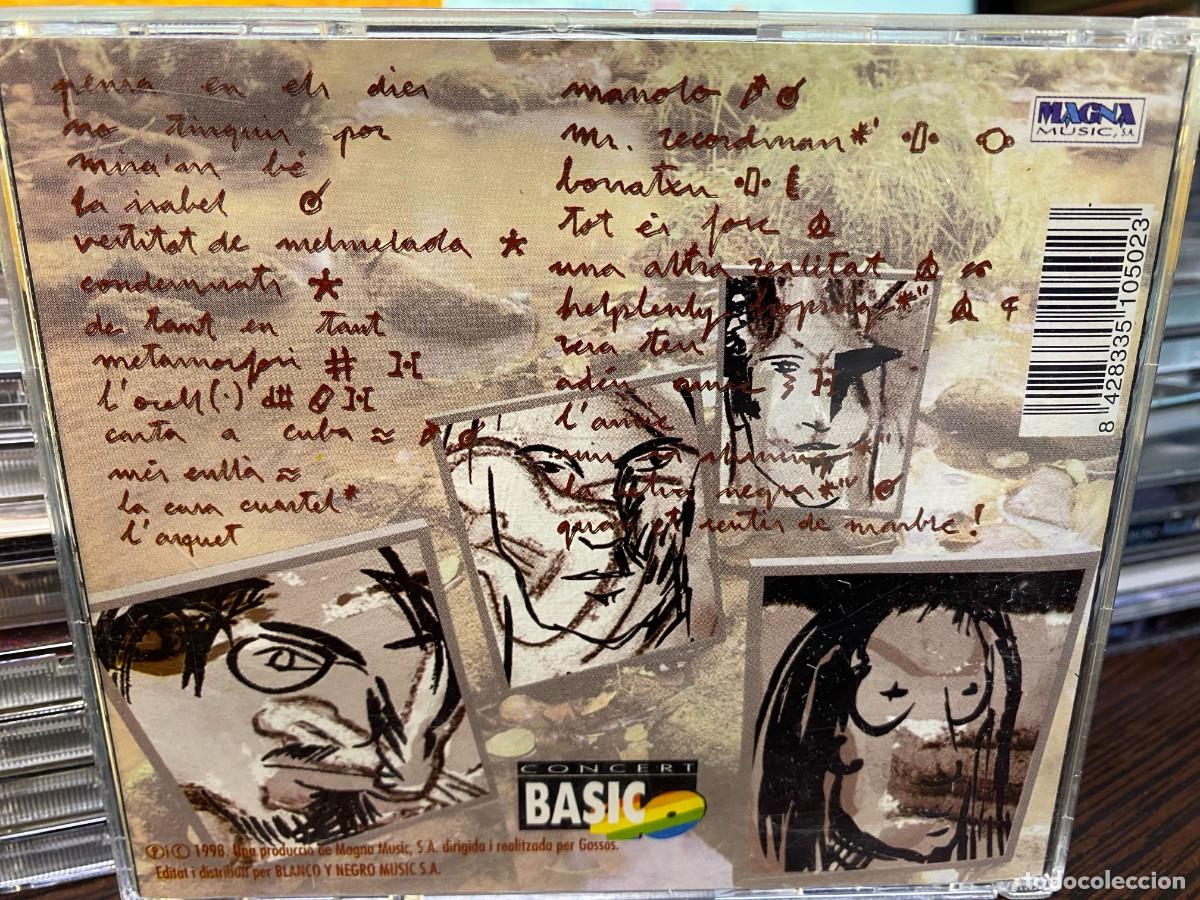 pensa en els dies
no tinguis por
mira'm bé
la isabel
vestitot de melmelada
condemnats
de tant en tant
metamorfosi #
l'ocell (·)
carta a cuba ≈
més enllà ≈
la casa cuartel*
l'arquet
manolo
mr. recordman*'
borratxu
tot és fosc
una altra realitat
helplently hoping*"
sera teu
adéu amic
l'amic
*"
la cabra negra*"
quan et sentis de marbre!
MAGNA
MUSIC, S.A.
8 428335 105023
CONCERT
BASIC 40
Ⓟ i © 1998. Una producció de Magna Music, S.A. dirigida i realitzada per Gossos.
Editat i distribuït per BLANCO Y NEGRO MUSIC S.A.
todocoleccion